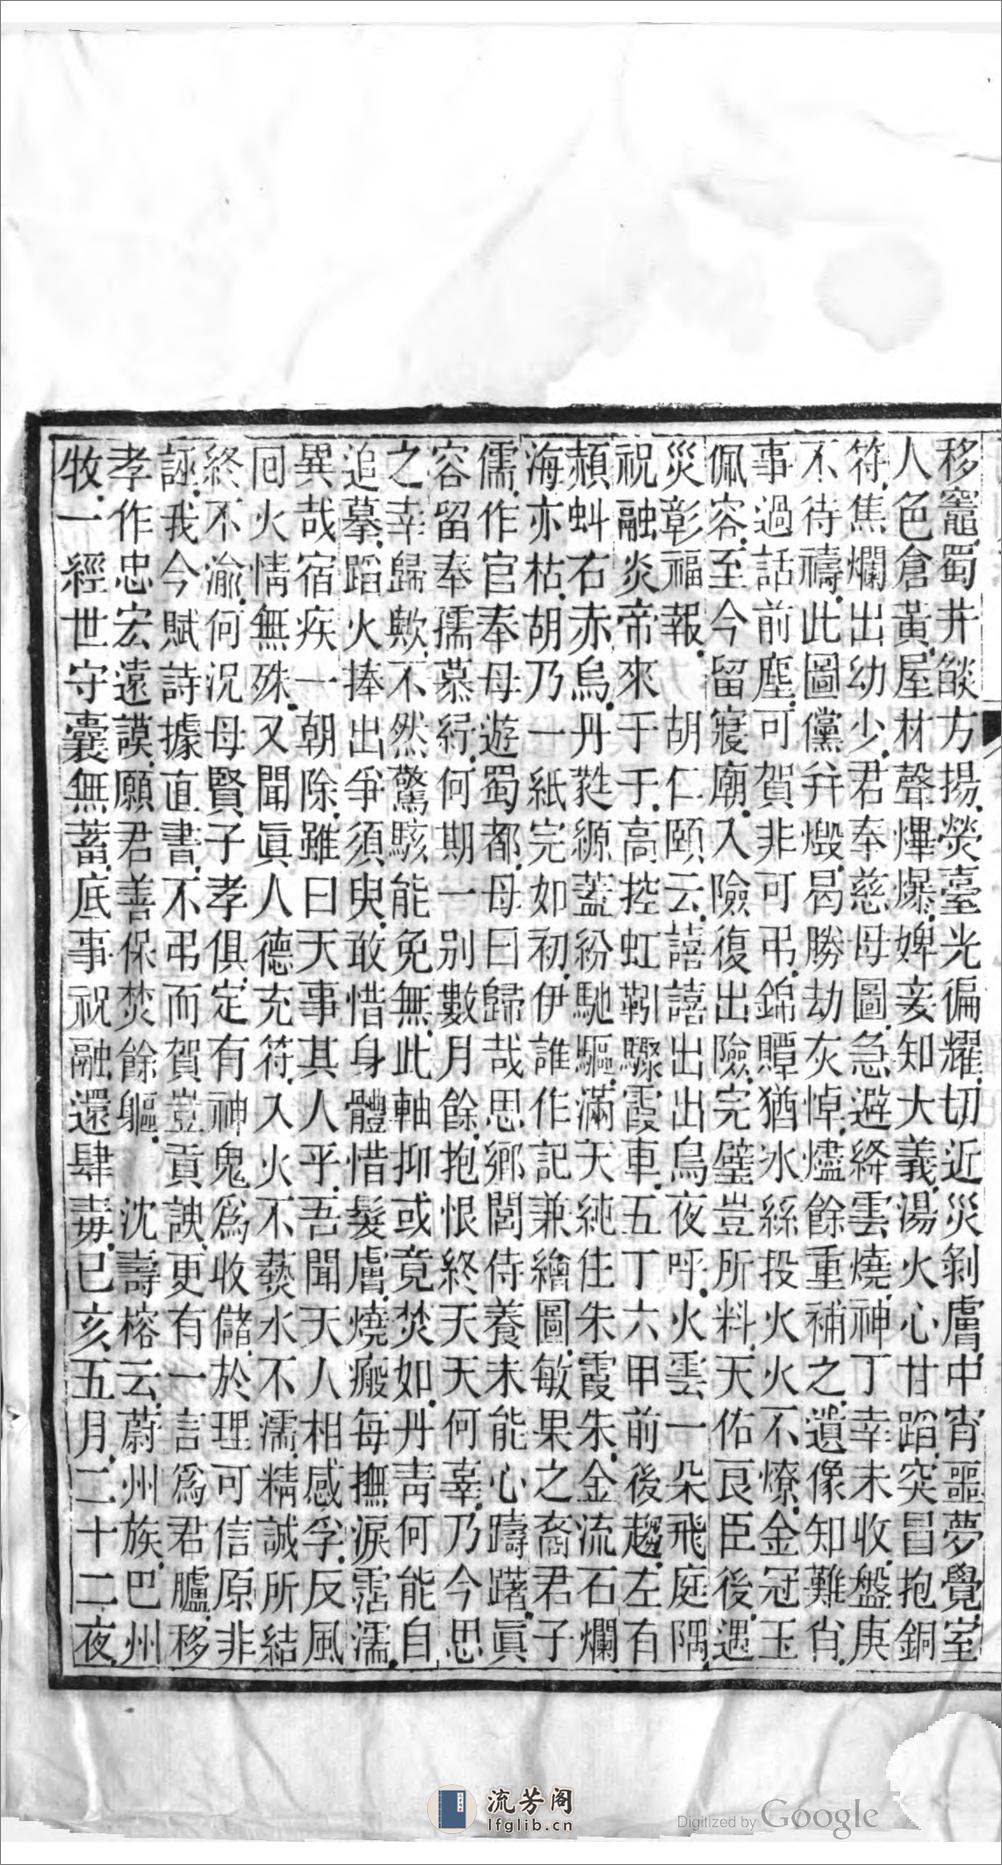 移竈蜀井燄方揚熒臺光徧耀切近災剝膚中宵噩夢覺室
人色倉黃屋材聲爗爆婢妾知大義湯火心甘蹈突冒抱銅
符焦爛出幼少君奉慈母圖急避絳雲燒神丁幸未收盤庚
不待禱此圖儻弁燬曷勝劫灰悼燼餘重補之遺像知難肖
事過話前塵可賀非可弔錦贉猶冰絲投火火不燎金冠玉
佩容至今留寢廟入險復出險完璧豈所料天佑良臣後遇
災彰福報　胡仁頤云譆譆出出烏夜呼火雲一朵飛庭隅
祝融炎帝來于于高控虹靷驟霞車五丁六甲前後趨左有
頳虯右赤烏丹甤縓蓋紛馳驅滿天純住朱霞朱金流石爛
海亦枯胡乃一紙完如初伊誰作記兼繪圖敏果之裔君子
儒作官奉母遊蜀都母曰歸哉思鄉閭侍養未能心躊躇眞
容留奉孺慕紓何期一别數月餘抱恨終天天何辜乃今思
之幸歸歟不然驚駭能免無此軸抑或竟焚如丹靑何能自
追摹蹈火捧出爭須臾敢惜身體惜髮膚燒瘢每撫淚霑濡
異哉宿疾一朝除雖曰天事其人乎吾聞天人相感孚反風
囘火情無殊又聞眞人德充符入火不爇水不濡精誠所結
終不渝何況母賢子孝俱定有神鬼爲收儲於理可信原非
誣我今賦詩據直書不弔而賀豈貢諛更有一言爲君臚移
孝作忠宏遠謨願君善保焚餘軀　沈壽榕云蔚州族巴州
牧一經世守囊無蓄底事祝融還肆毒已亥五月二十二夜
流芳阁
lfglib.cn
Digitized by Google